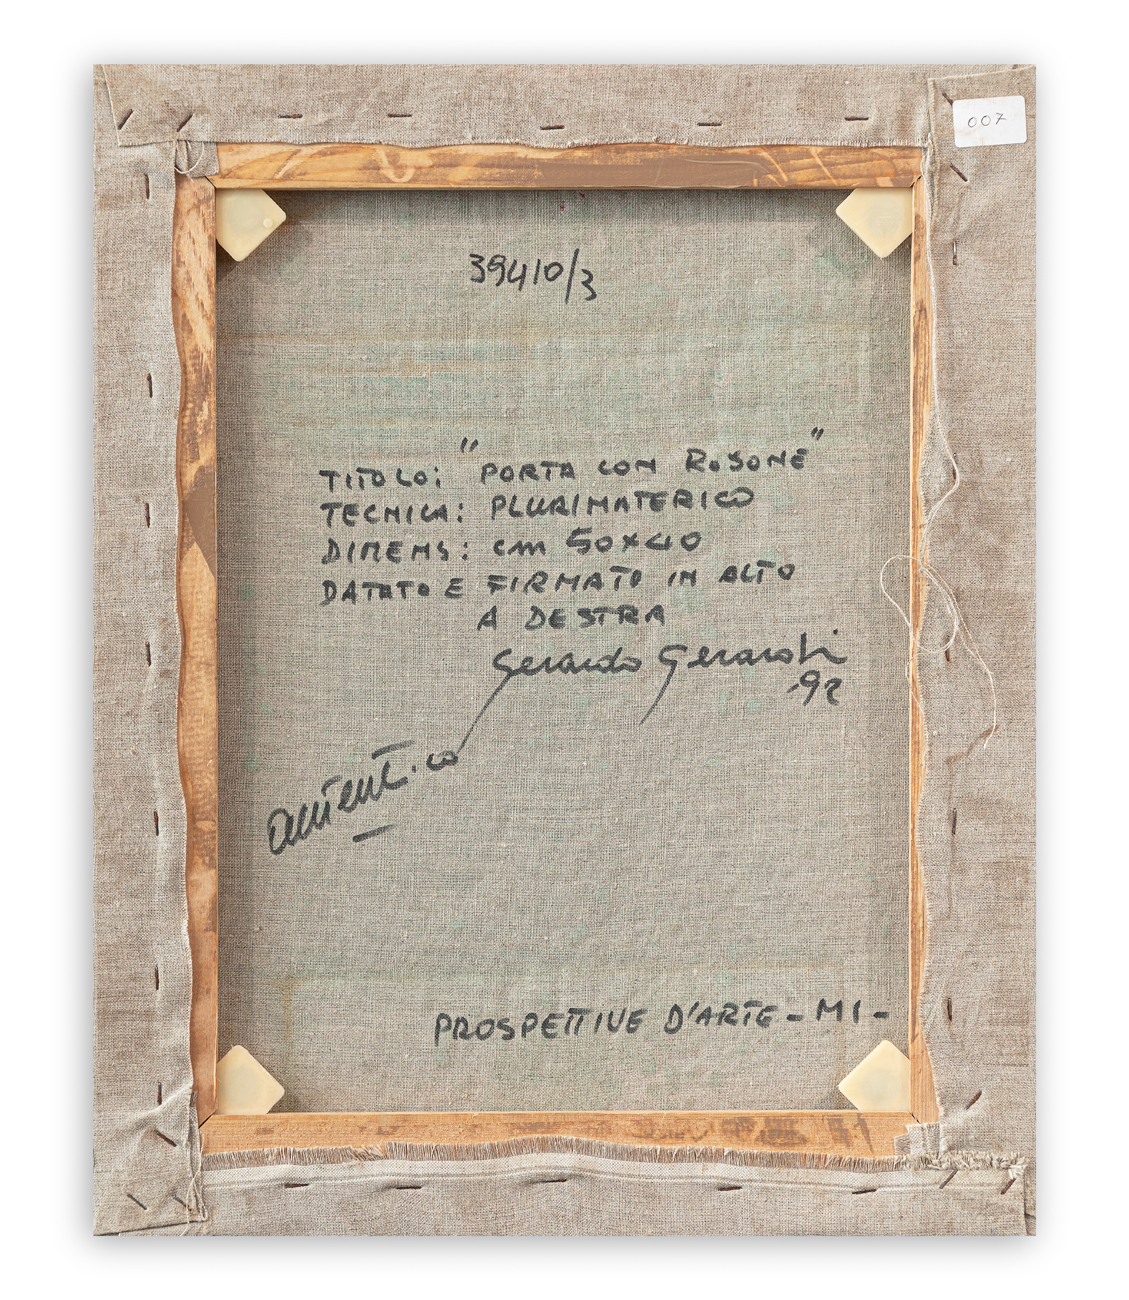 007
39410/3
TITOLO: "PORTA CON ROSONE"
TECNICA: PLURIMATERICO
DIMENS: cm 50x40
DATATO E FIRMATO IN ALTO
A DESTRA
Gerardo Gerardi
-92
autentico
PROSPETTIVE D'ARTE - MI -